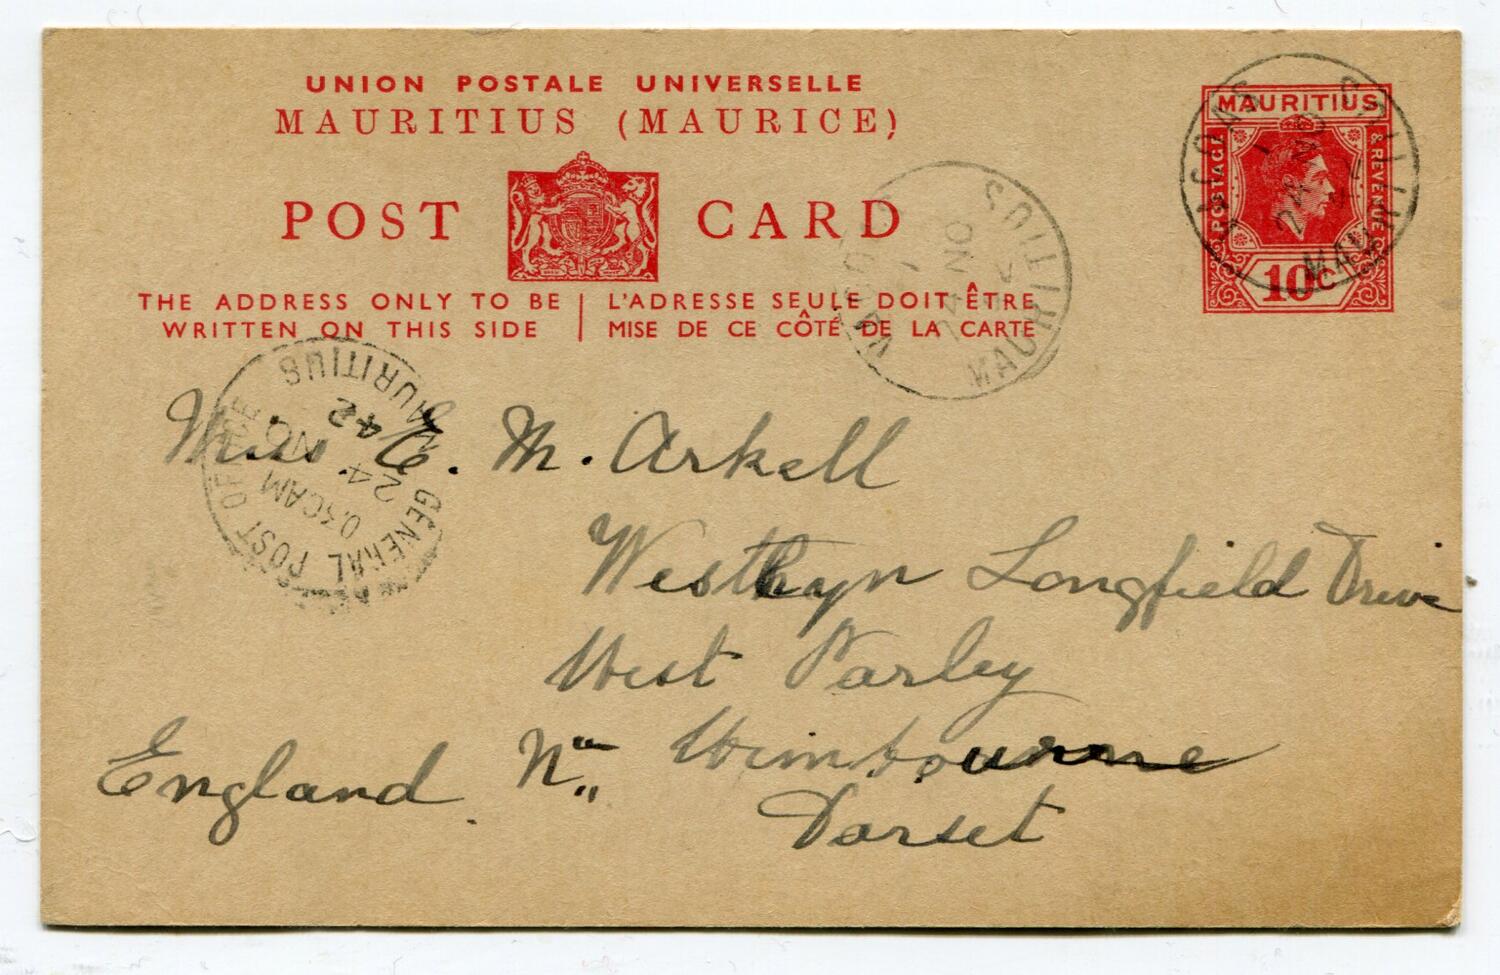 UNION POSTALE UNIVERSELLE
MAURITIUS (MAURICE)
POST CARD
THE ADDRESS ONLY TO BE
WRITTEN ON THIS SIDE
L'ADRESSE SEULE DOIT ÊTRE
MISE DE CE CÔTÉ DE LA CARTE
MAURITIUS
POSTAGE
& REVENUE
10c
VACOAS
MAURITIUS
24 NO
42
VACOAS
MAURITIUS
24 NO
GENERAL POST OFFICE
MAURITIUS
24 NO
42
Miss E. M. Arkell
Longfield Drive
West Parley
Nr Wimbourne
Dorset
England.